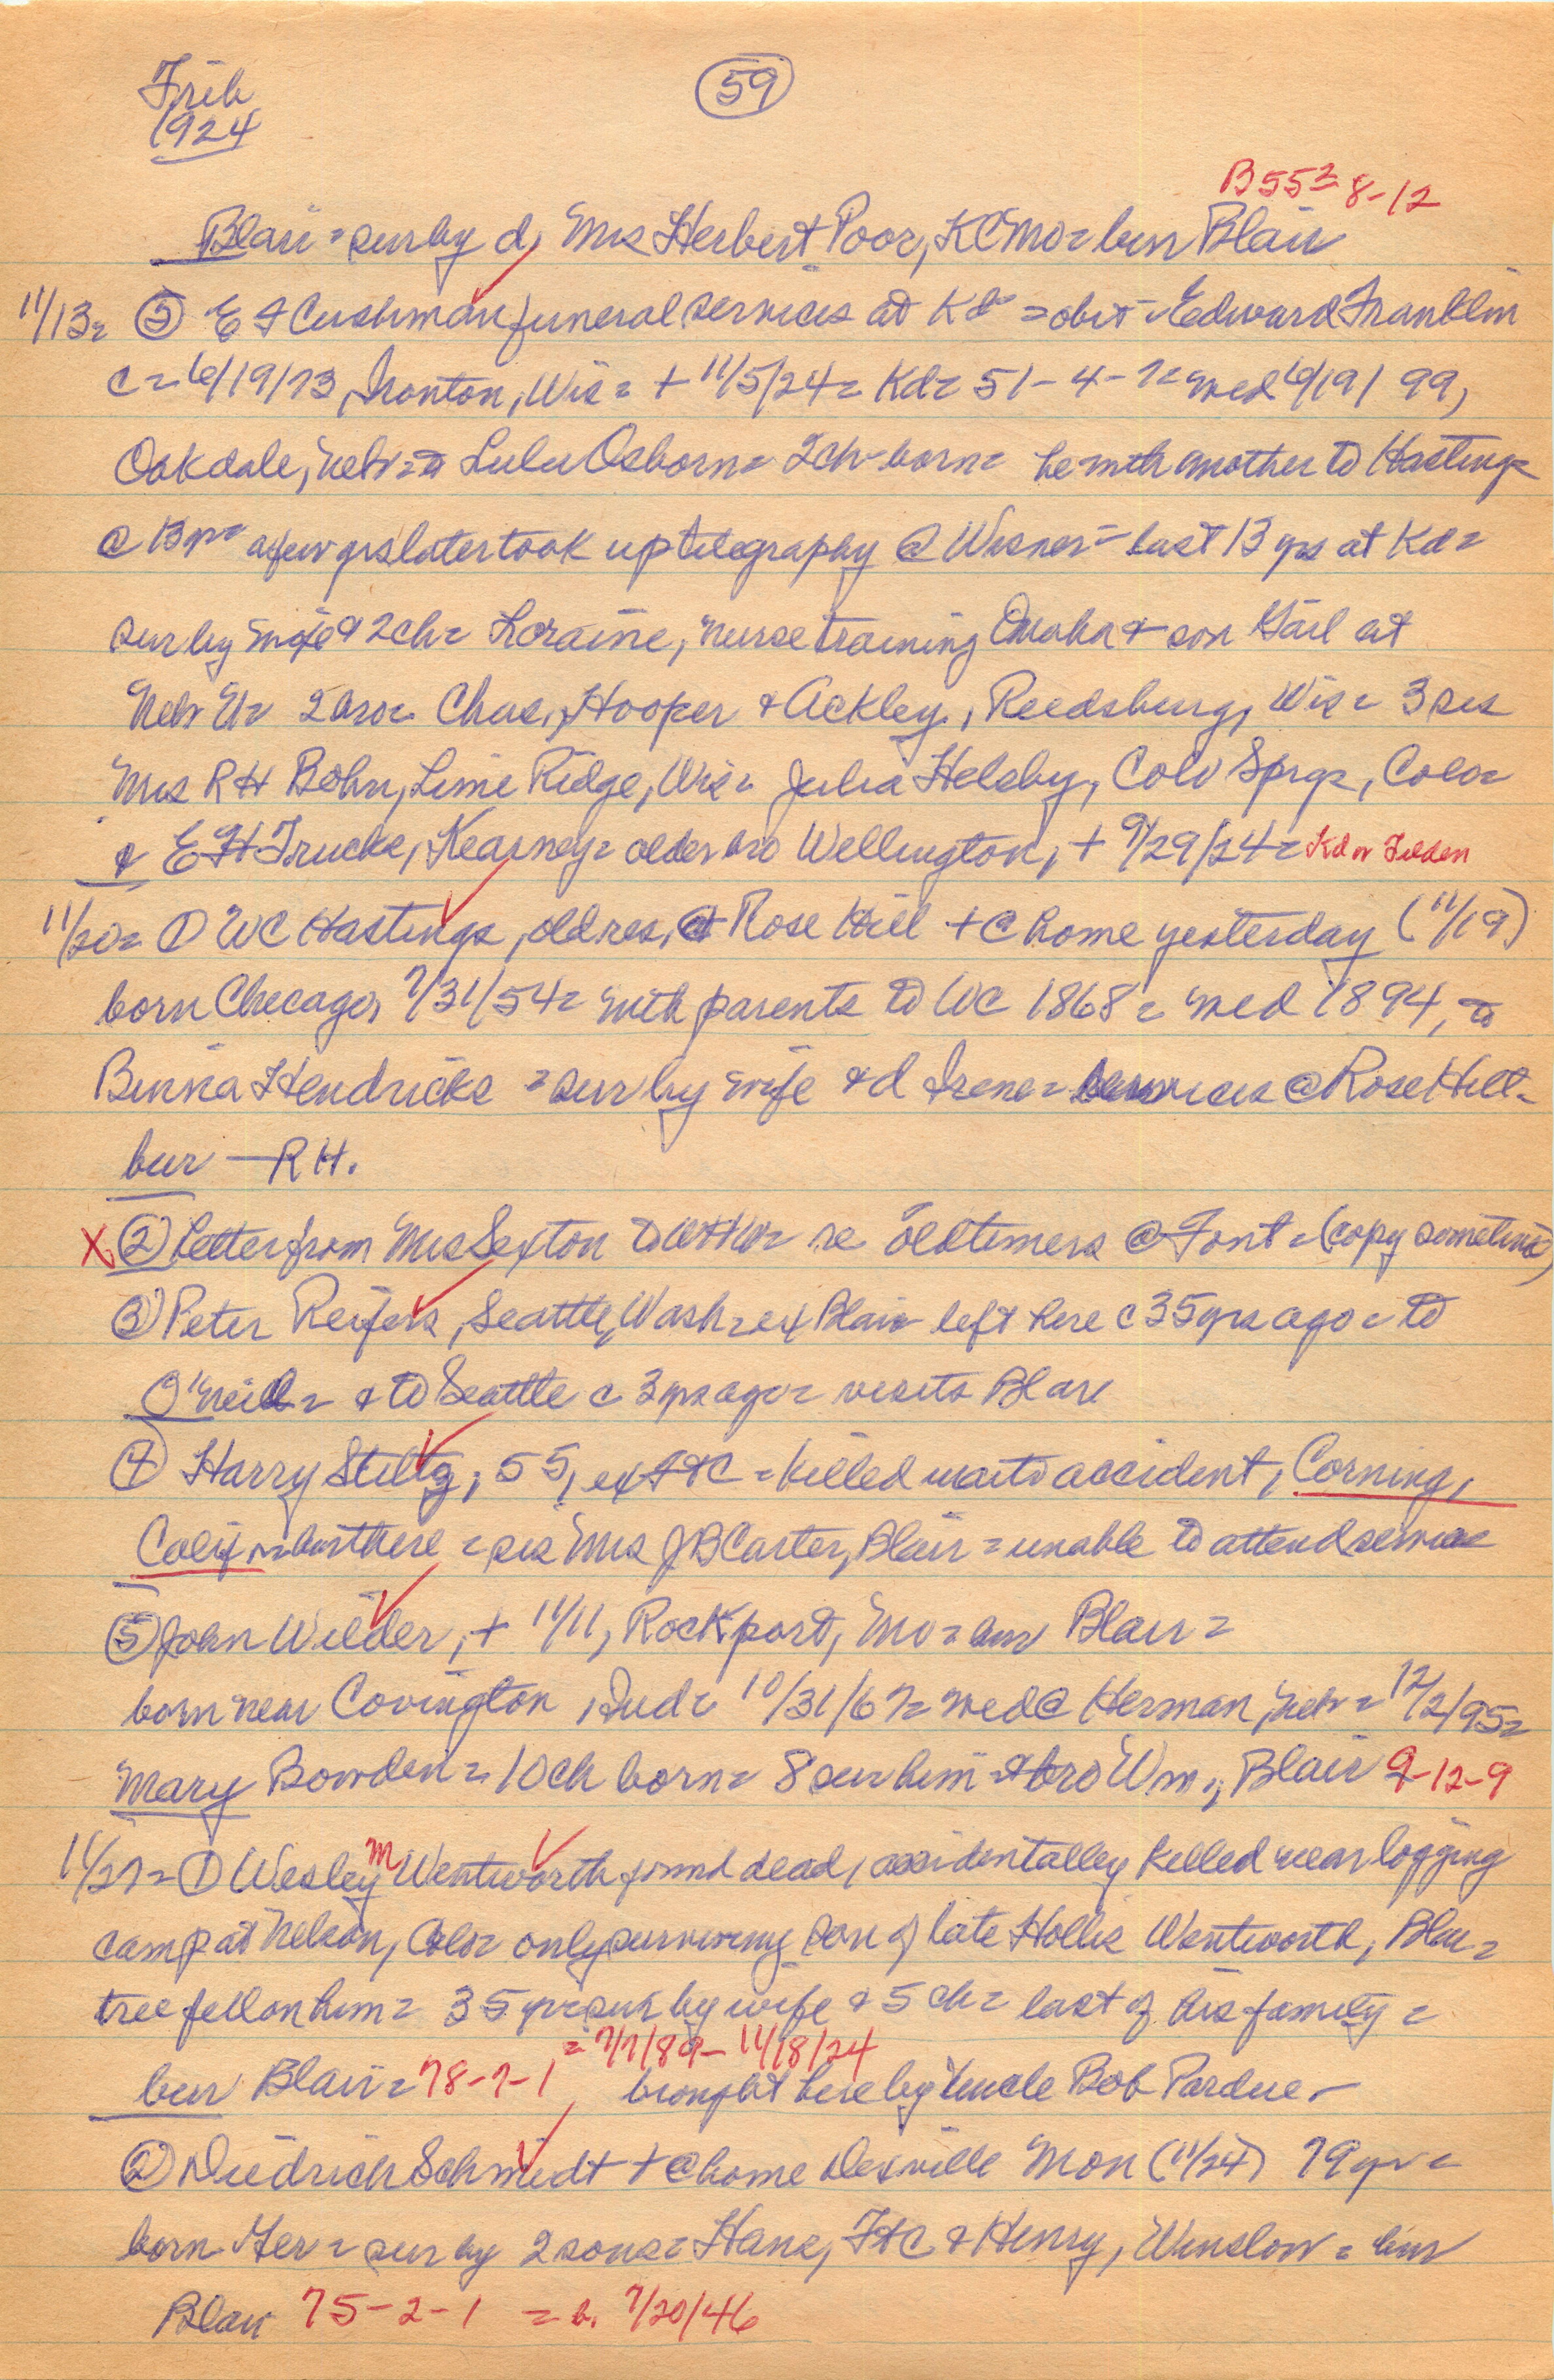 Trib
1924
59
B 552 8-12
Blair = sur by d, Mrs Herbert Poor, KC Mo = bur Blair
11/13= ⑤ E F Cushman funeral services at Kd = obit - Edward Franklin
C = 6/19/73, Ironton, Wis = + 11/5/24 = Kd = 51-4-? = med 6/19/99,
Oakdale, Nebr = to Lulu Osborn = 2 ch born = he with mother to Hastings
@ 13 yr = a few yrs later took up telegraphy @ Wisner = last 13 yrs at Kd =
sur by wife & 2 ch = Loraine, nurse training Omaha & son Gail at
Neb U = 2 bro = Chas, Hooper & Ackley, Reedsburg, Wis = 3 sis
Mrs R H Bohn, Lime Ridge, Wis = Julia Helsby, Colo Sprgs, Colo =
& E H Trucke, Kearney = older bro Wellington, + 9/29/24 = Kd or Tilden
11/20= ① WC Hastings, old res, @ Rose Hill + @ home yesterday (11/19)
born Chicago, 7/31/54 = with parents to WC 1868 = med 1894, to
Hendricks = sur by wife & d Irene = services @ Rose Hill =
bur — RH.
X ② Letter from Mrs Sexton to = re oldtimers @ Font = (copy sometime)
③ Peter Reifers, Seattle, Wash = ex Blair left here c 35 yrs ago = to
O'Neill = & to Seattle c 3 yrs ago = visits Blair
④ Harry Stiltz, 55, ex FtC = killed auto accident, Corning,
Calif = bur there = sis Mrs J B Carter, Blair = unable to attend services
⑤ John Wilder, + 11/11, Rockport, Mo = bur Blair =
born near Covington, Ind = 10/31/67 = med @ Herman, Nebr = 12/2/95 =
Mary Bowden = 10 ch born = 8 sur him = & bro Wm, Blair 9-12-9
11/27= ① Wesley M Wentworth found dead, accidentally killed near logging
camp at Nelson, Colo = only surviving son of late Hollis Wentworth, Blair =
tree fell on him = 35 yr = sur by wife & 5 ch = last of his family =
= 7/7/89 - 11/18/24
bur Blair = 78-7-1 brought here by Uncle Bob Pardue -
② Diedrich Schmidt + @ home Desville Mon (11/24) 79 yr =
born Ger = sur by 2 sons = Hans, FtC & Henry, Winslow = bur
Blair 75-2-1 = b. 7/20/46